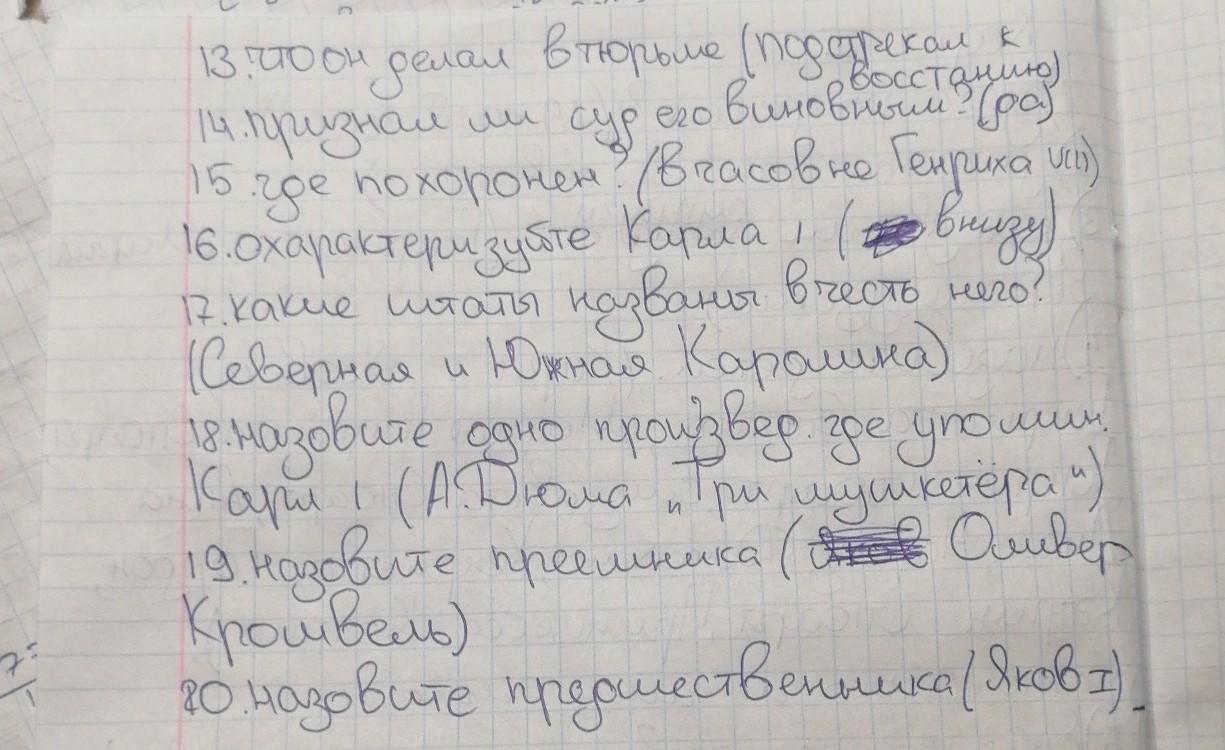 13. что он делал в тюрьме (подстрекал к
восстанию)
14. признал ли суд его виновным? (да)
15. где похоронен? (в часовне Генриха VIII)
16. охарактеризуйте Карла I ( внизу)
17. какие штаты названы в честь него?
(Северная и Южная Каролина)
18. назовите одно произвед. где упомин.
Карл I (А. Дюма „Три мушкетёра")
19. назовите преемника ( Оливер
Кромвель)
20. назовите предшественника (Яков I)